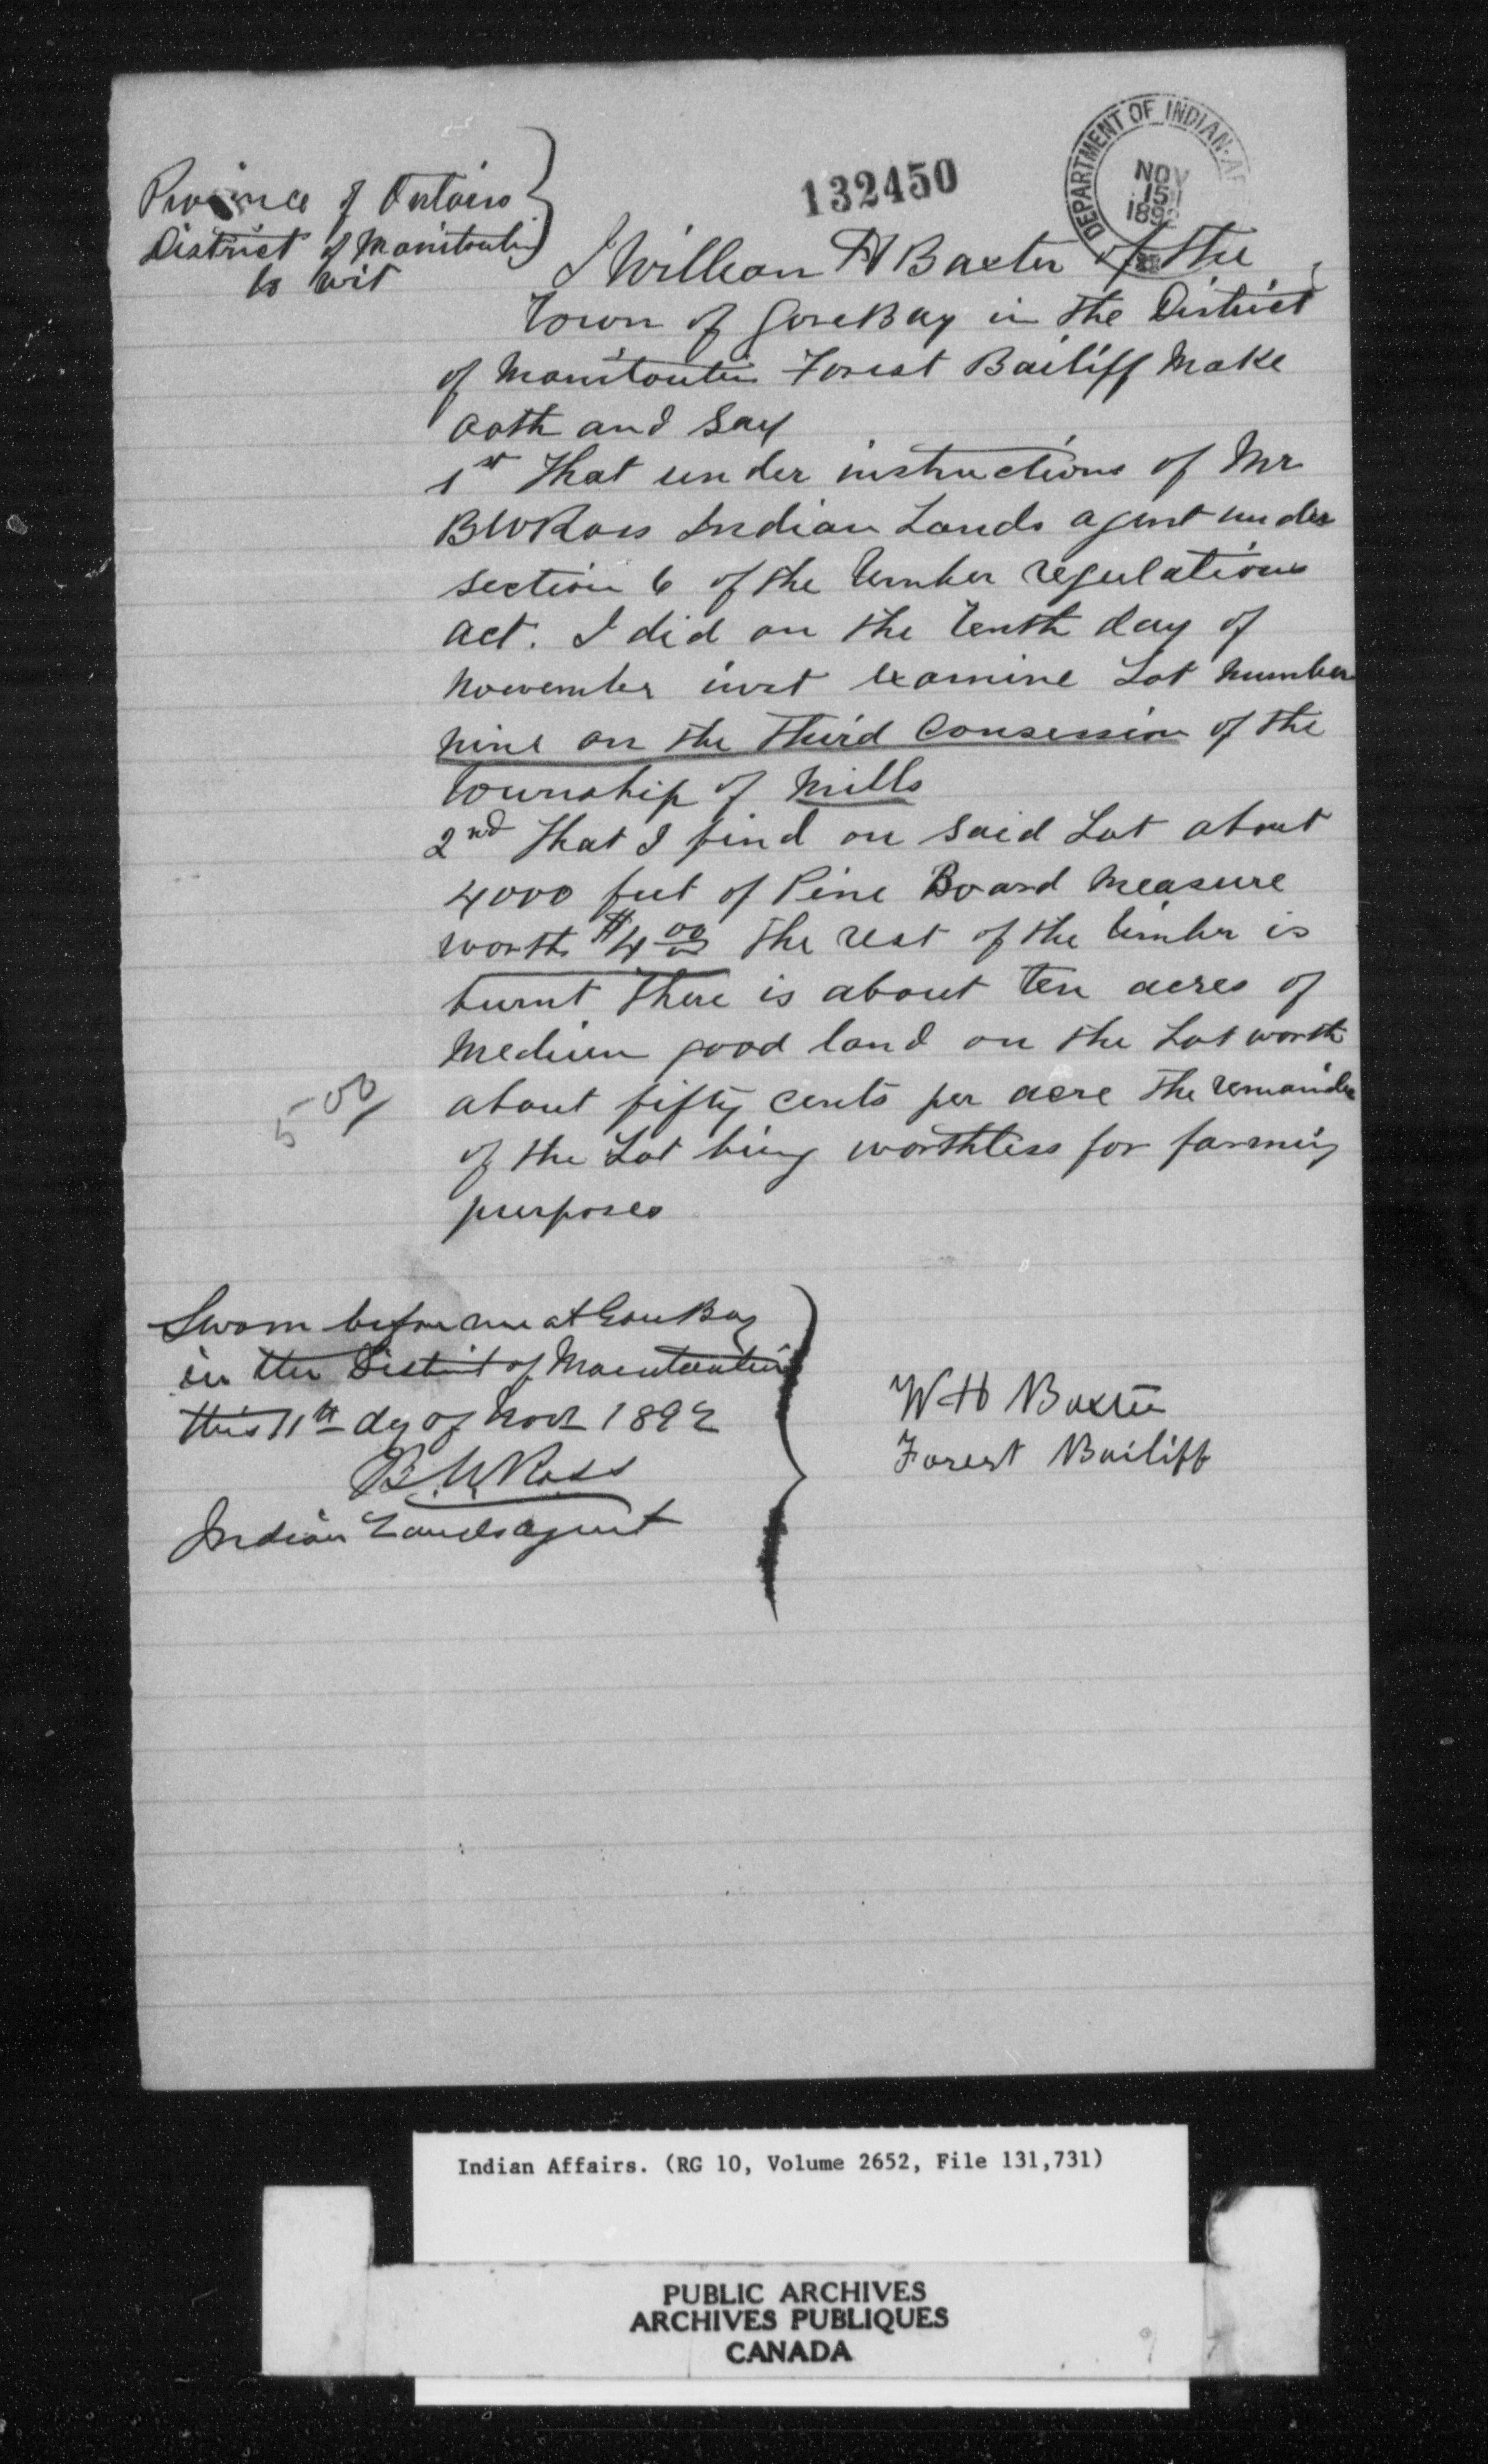 132450
DEPARTMENT OF INDIAN AF
NOV
15
1892
Province of Ontairo
District of Manitoulin
to wit
I William H Baxter of the
Town of Gore Bay in the District
of Manitoulin Forest Bailiff Make
oath and Say
1st That under instructions of Mr
B W Ross Indian Lands agent under
section 6 of the timber regulations
act. I did on the tenth day of
November inst examine Lot number
nine on the third Consession of the
township of Mills
2nd That I find on said Lot about
4000 feet of Pine Board Measure
worth $4.00 The rest of the timber is
burnt There is about ten acres of
Medium good land on the Lot worth
5 00
about fifty cents per acre The remainder
of the Lot being worthless for farming
purposes
Sworn before me at Gore Bay
in the District of Manitoulin
this 11th dy of Nov 1892
B. W. Ross
Indian Lands agent
W H Baxter
Forest Bailiff
Indian Affairs. (RG 10, Volume 2652, File 131,731)
PUBLIC ARCHIVES
ARCHIVES PUBLIQUES
CANADA